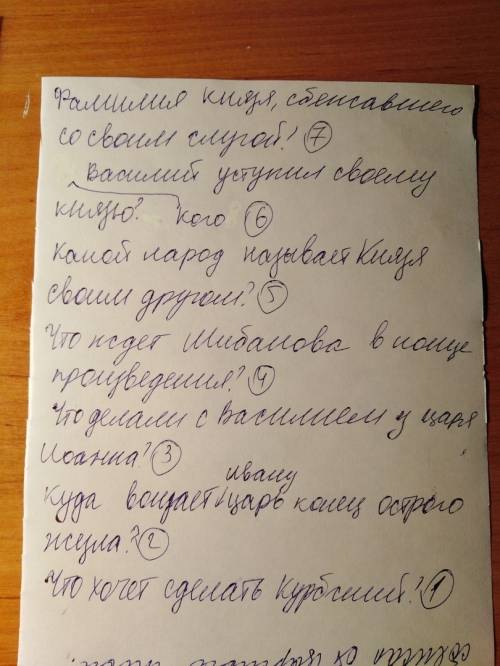 Фамилия князя, сбежавшего
со своим слугой? 7
Василий уступил своему
князю? кого 6
какой народ называет Князя
своим другом? 5
Что ждет Шибанова в конце
произведения? 4
Что делали с Василием у царя
Иоанна? 3
ивану
куда вонзает царь конец острого
жезла? 2
Что хочет сделать Курбский? 1